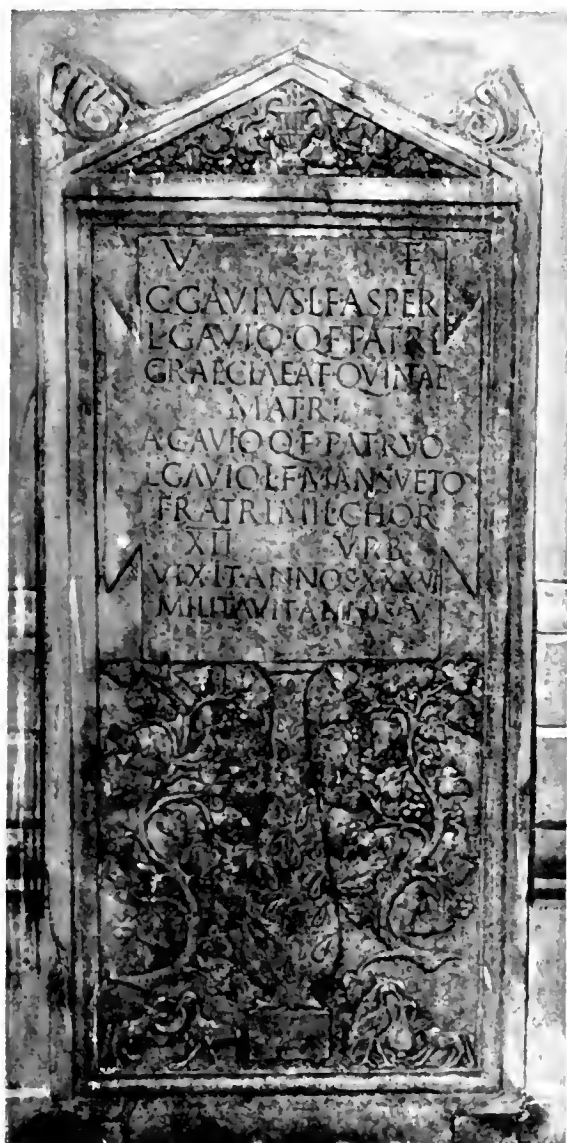 V F
C·GAVIVS·L·F·ASPER
L·GAVIO·Q·F·PATRI
GRAECIAE·A·F·QVINAE
MATRI
A·GAVIO·Q·F·PATRVO
L·GAVIO·L·F·MANSVETO
FRATRI·MIL·CHOR
XII VRB
VIXIT·ANNOS·XXXVI
MILITAVIT·ANNIS·V